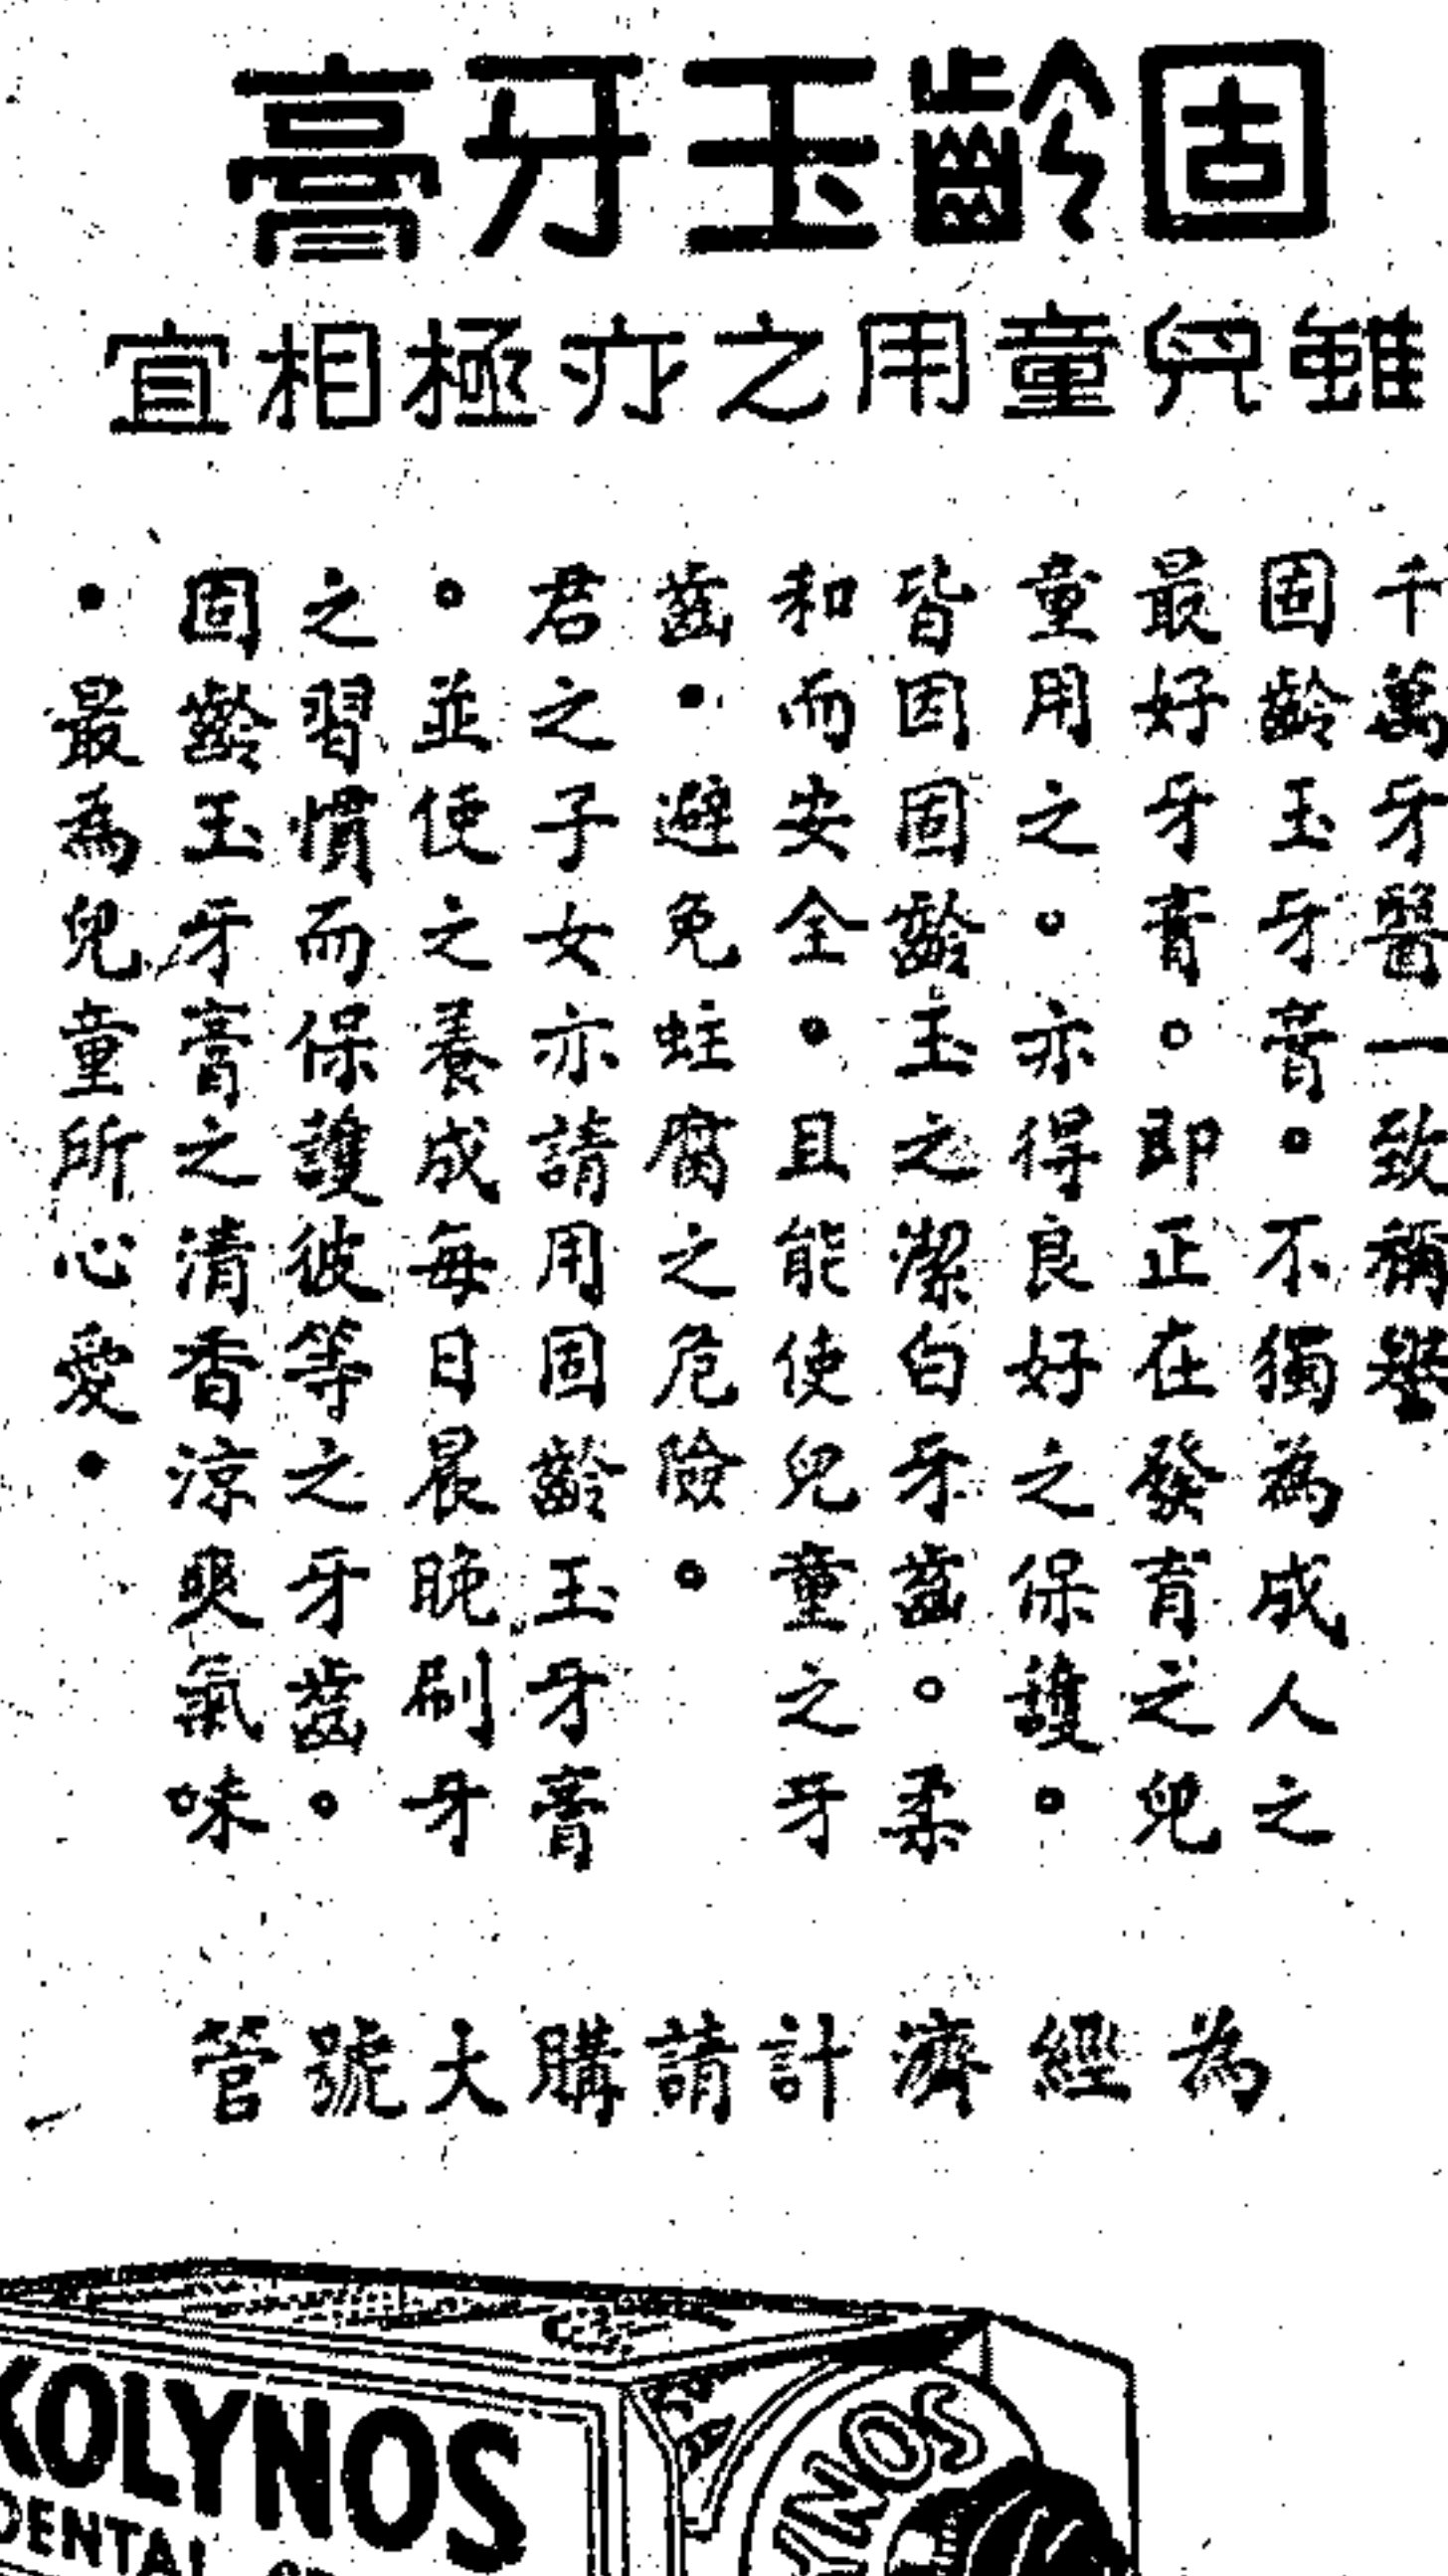 固齡玉牙膏
雖兒童用之亦極相宜
千萬牙醫一致稱譽
固齡玉牙膏。不獨為成人之
最好牙膏。即正在發育之兒
童用之。亦得良好之保護。
皆因固齡玉之潔白牙齒。柔
和而安全。且能使兒童之牙
齒。避免蛀腐之危險。
君之子女亦請用固齡玉牙膏
。並使之養成每日晨晚刷牙
之習慣而保護彼等之牙齒。
固齡玉牙膏之清香涼爽氣味
。最為兒童所心愛。
為經濟計請購大號管
KOLYNOS
DENTAL
YNOS